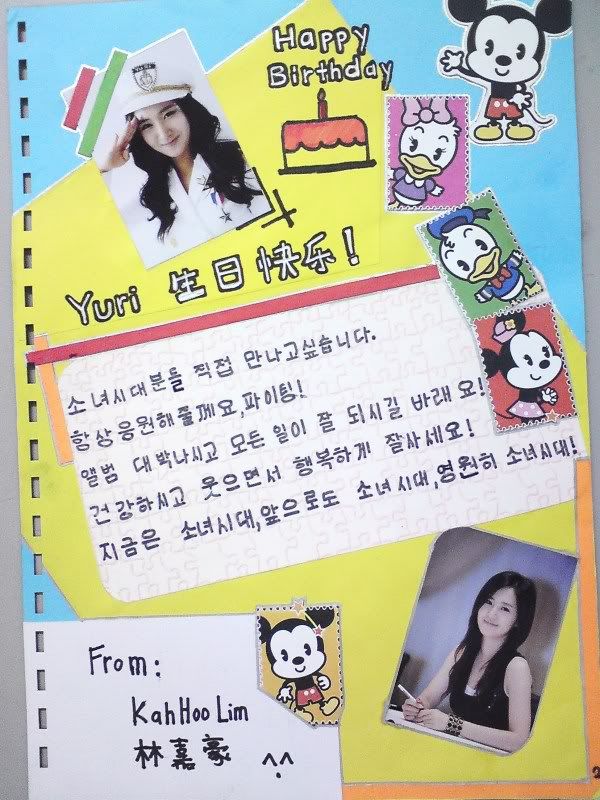 Happy
Birthday
Yuri 生日快乐!
소녀시대분들 직접 만나고싶습니다.
항상응원해줄께요,파이팅!
앨범 대박나시고 모든일이 잘 되시길 바래요!
건강하시고 웃으면서 행복하게 잘사세요!
지금은 소녀시대,앞으로도 소녀시대,영원히 소녀시대!
From:
KahHoo Lim
林嘉豪 ^.^